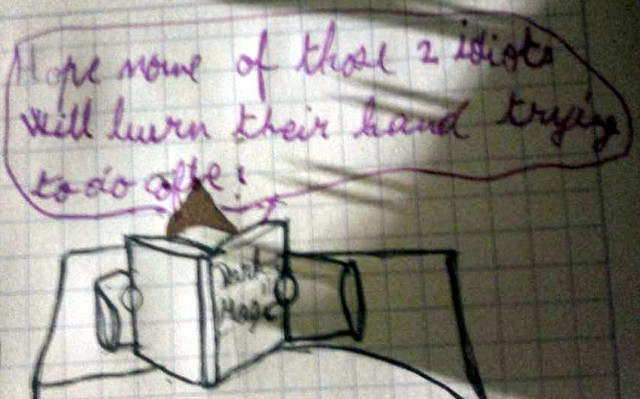 Hope none of those 2 idiots
will burn their hand trying
to do coffe!
Dark
Magic